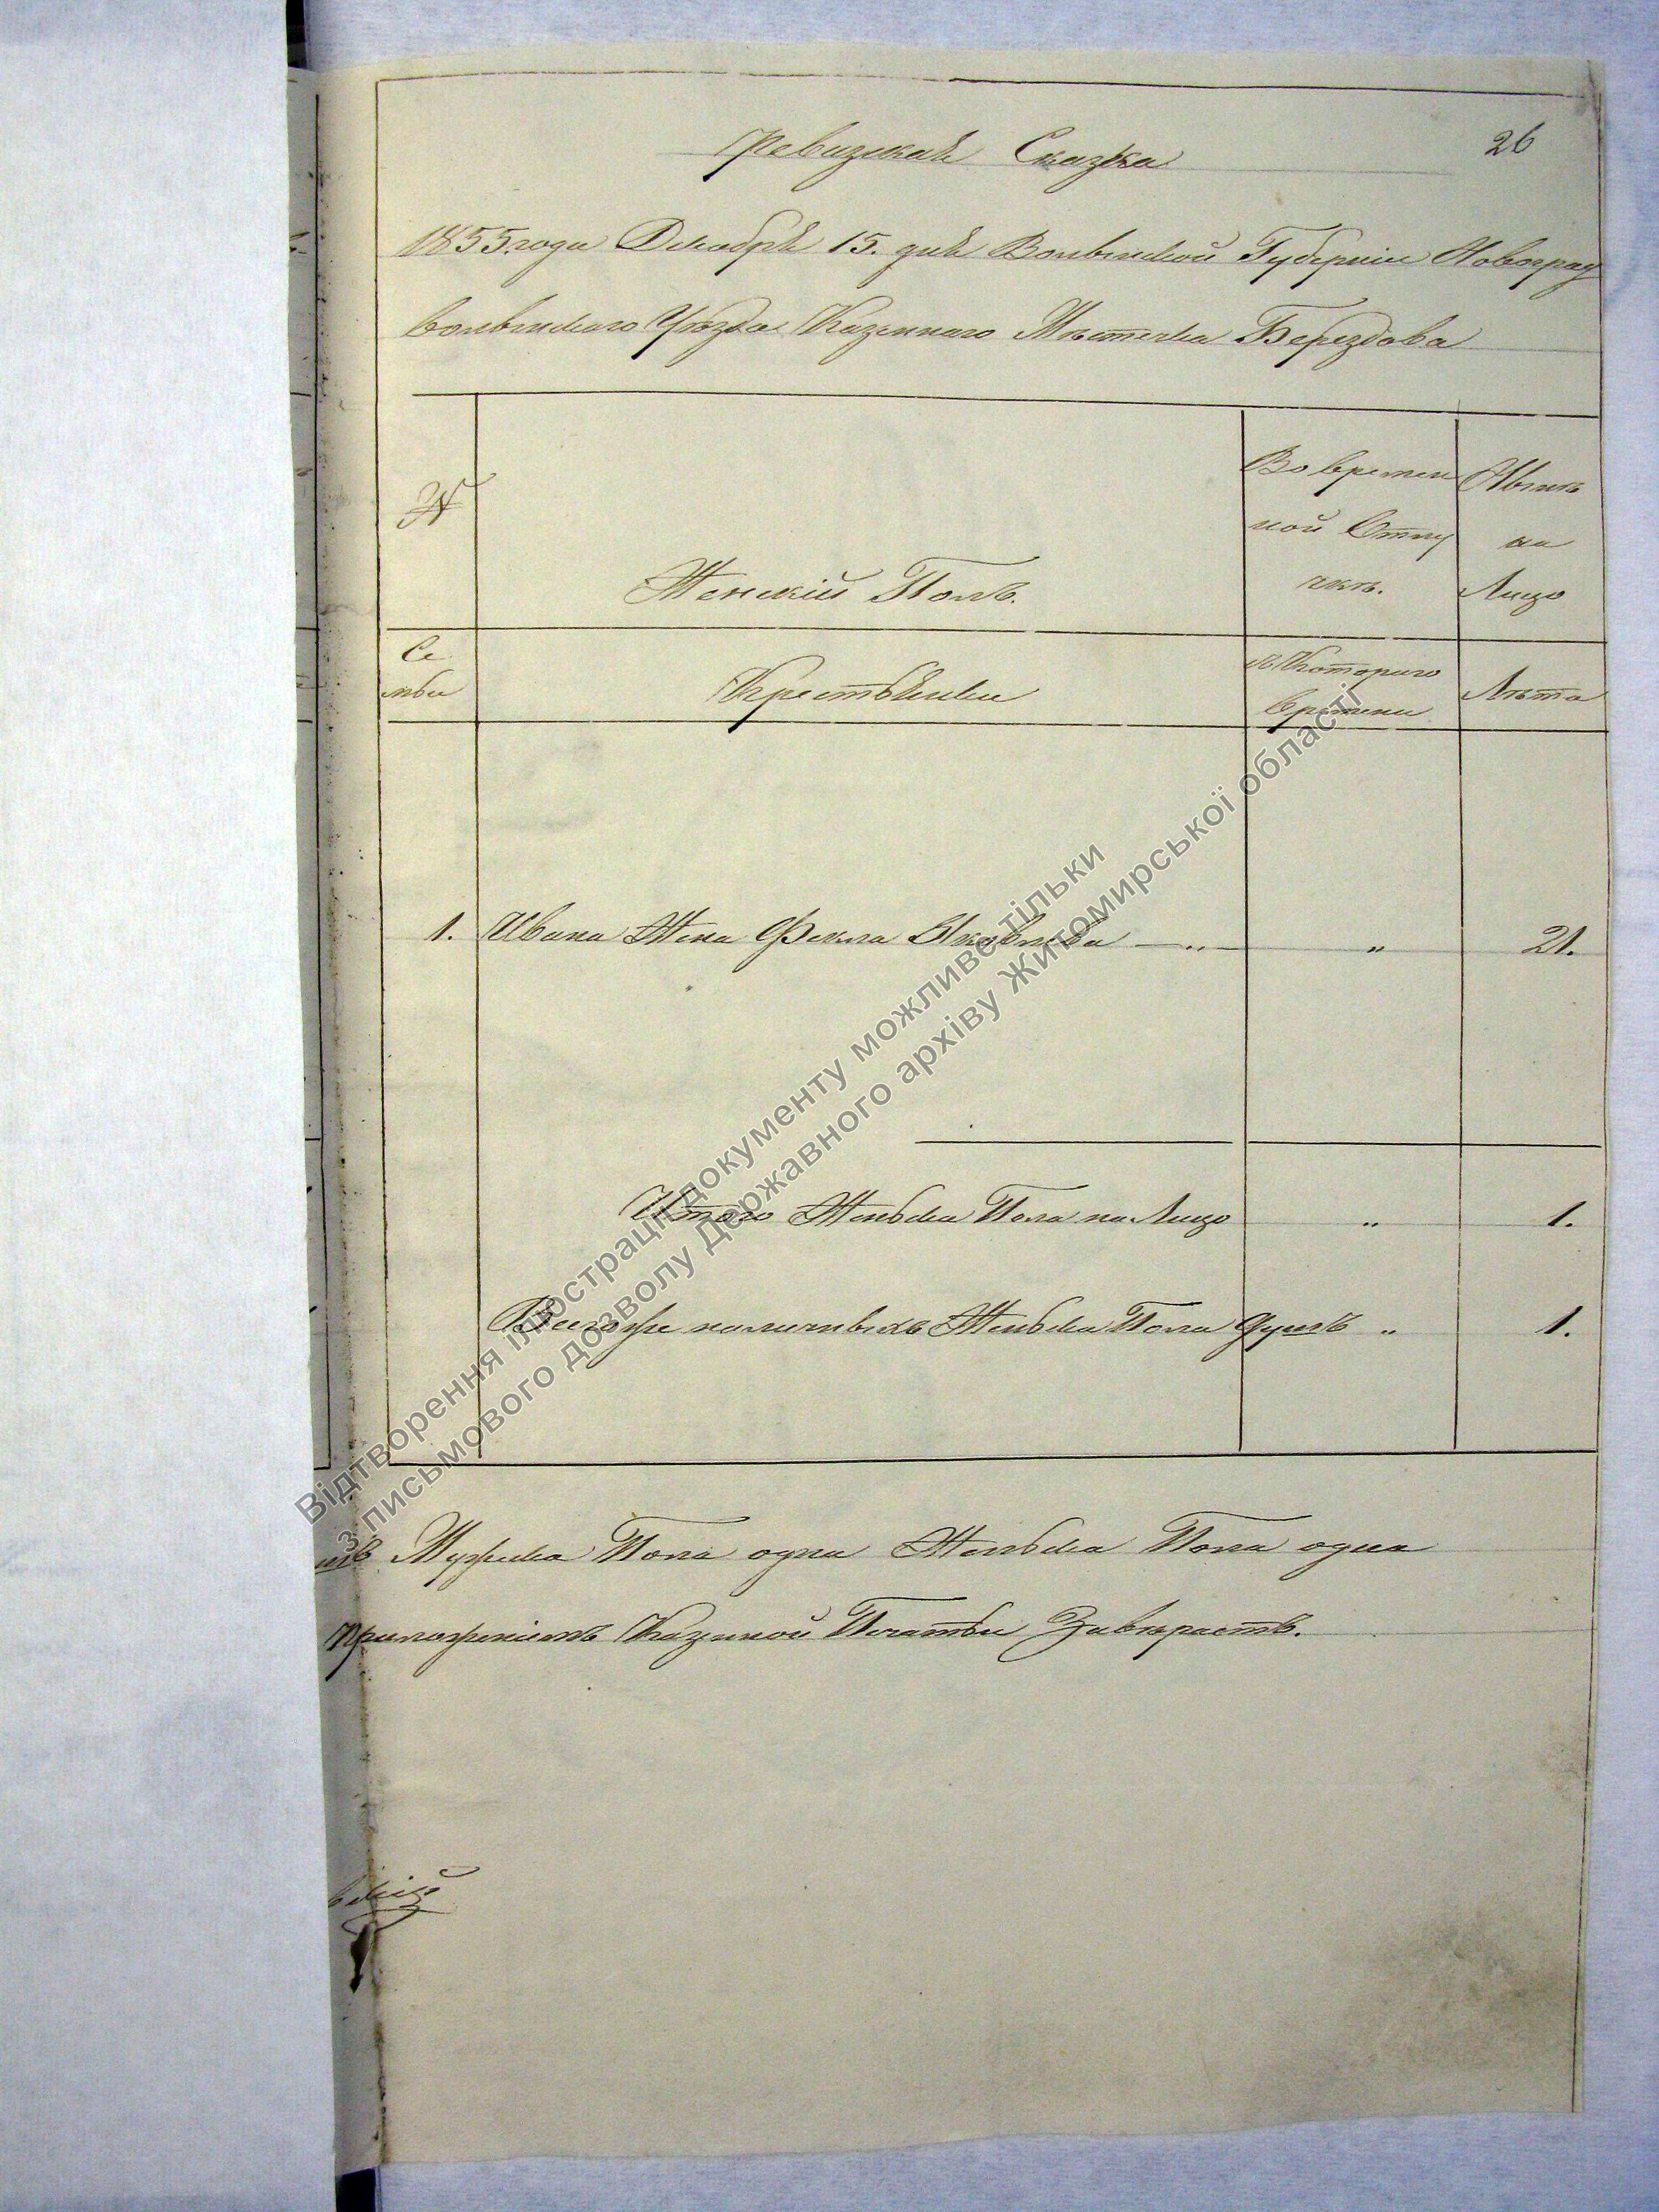 26
Ревизская Сказка
1855 года Декабря 15. дня Волынской Губернiи Новоград
волынскаго Уѣзда Казеннаго Мѣстечка Берездова
№
Женскiй Полъ.
Во времен
ной Отлу
чкѣ.
Нынѣ
на
Лицо
Се
мьи
Крестьянки
Съ Котораго
времени
Лѣта
1. Ивана Жена Фекла Яковлева — „ — „ 21.
Итого Женска Пола на Лицо „ 1.
Всегоже наличныхъ Женска Пола Душъ „ 1.
Мужска Пола одна Женска Пола одна
приложенiемъ Казенной Печатьи Завѣряетъ.
Відтворення ілюстрації документу можливе тільки
з письмового дозволу Державного архіву Житомирської області